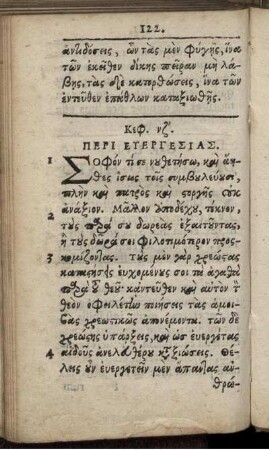 122.
ἀντιδόσεις, ὧν τὰς μὲν φύγῃς, ἵνα
τῶν ἐκεῖθεν δίκης πεῖραν μὴ λά-
βῃς, τὰς δὲ κατορθώσεις, ἵνα τῶν
ἐντεῦθεν ἐπάθλων καταξιωθῇς.
Κεφ. νζ.
ΠΕΡΙ ΕΥΕΡΓΕΣΙΑΣ.
1 ΣΟΦόν τί σε νουθετήσω, καὶ ἄηθες
ἴσως τοῖς συμβουλεύουσι,
πλὴν καὶ πατρὸς καὶ στοργῆς οὐκ
2 ἀνάξιον. Μᾶλλον ὑποδέχου, τέκνον,
τοὺς παρὰ σοῦ δωρεὰς ἐξαιτοῦντας,
ἢ τοὺς δῶρά σοι φιλοτιμότερον προσ-
3 κομίζοντας. τοὺς μὲν γὰρ χρεώστας
καταστήσῃς εὐχομένους σοι τὰ ἀγαθὰ
παρὰ τοῦ θεοῦ κἀντεῦθεν καὶ αὐτὸν τὸν
θεὸν ὀφειλέτην ποιήσεις τὰς ἀμοι-
βὰς χρεωστικῶς ἀπονέμοντα. τῶν δὲ
χρεώστης ὑπάρξεις, καὶ ὡς εὐεργέτας
4 αἰδοῦς ἀνελευθέρου ἀξιώσεις. Θέ-
λεις οὖν εὐεργετεῖν μὲν ἅπαντας ἀν-
θρώ-